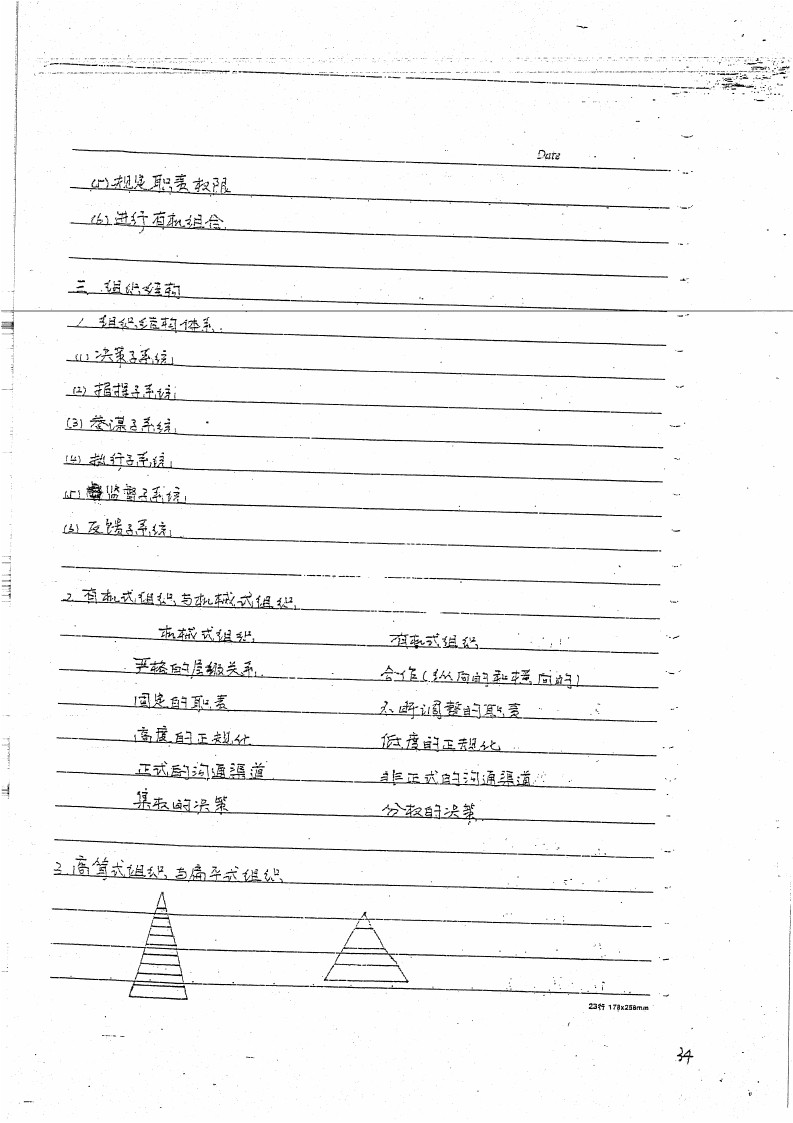 Date
(5)规定职责权限
(6)进行有机组合.
三.组织结构
1.组织结构体系.
(1)决策子系统;
(2)指挥子系统;
(3)参谋子系统;
(4)执行子系统;
(5)监督子系统;
(6)反馈子系统;
2.有机式组织与机械式组织.
机械式组织. 有机式组织
严格的层级关系. 合作(纵向的和横向的)
固定的职责 不断调整的职责
高度的正规化 低度的正规化
正式的沟通渠道 非正式的沟通渠道
集权的决策 分权的决策.
3.高耸式组织与扁平式组织.
23行 178x256mm
34